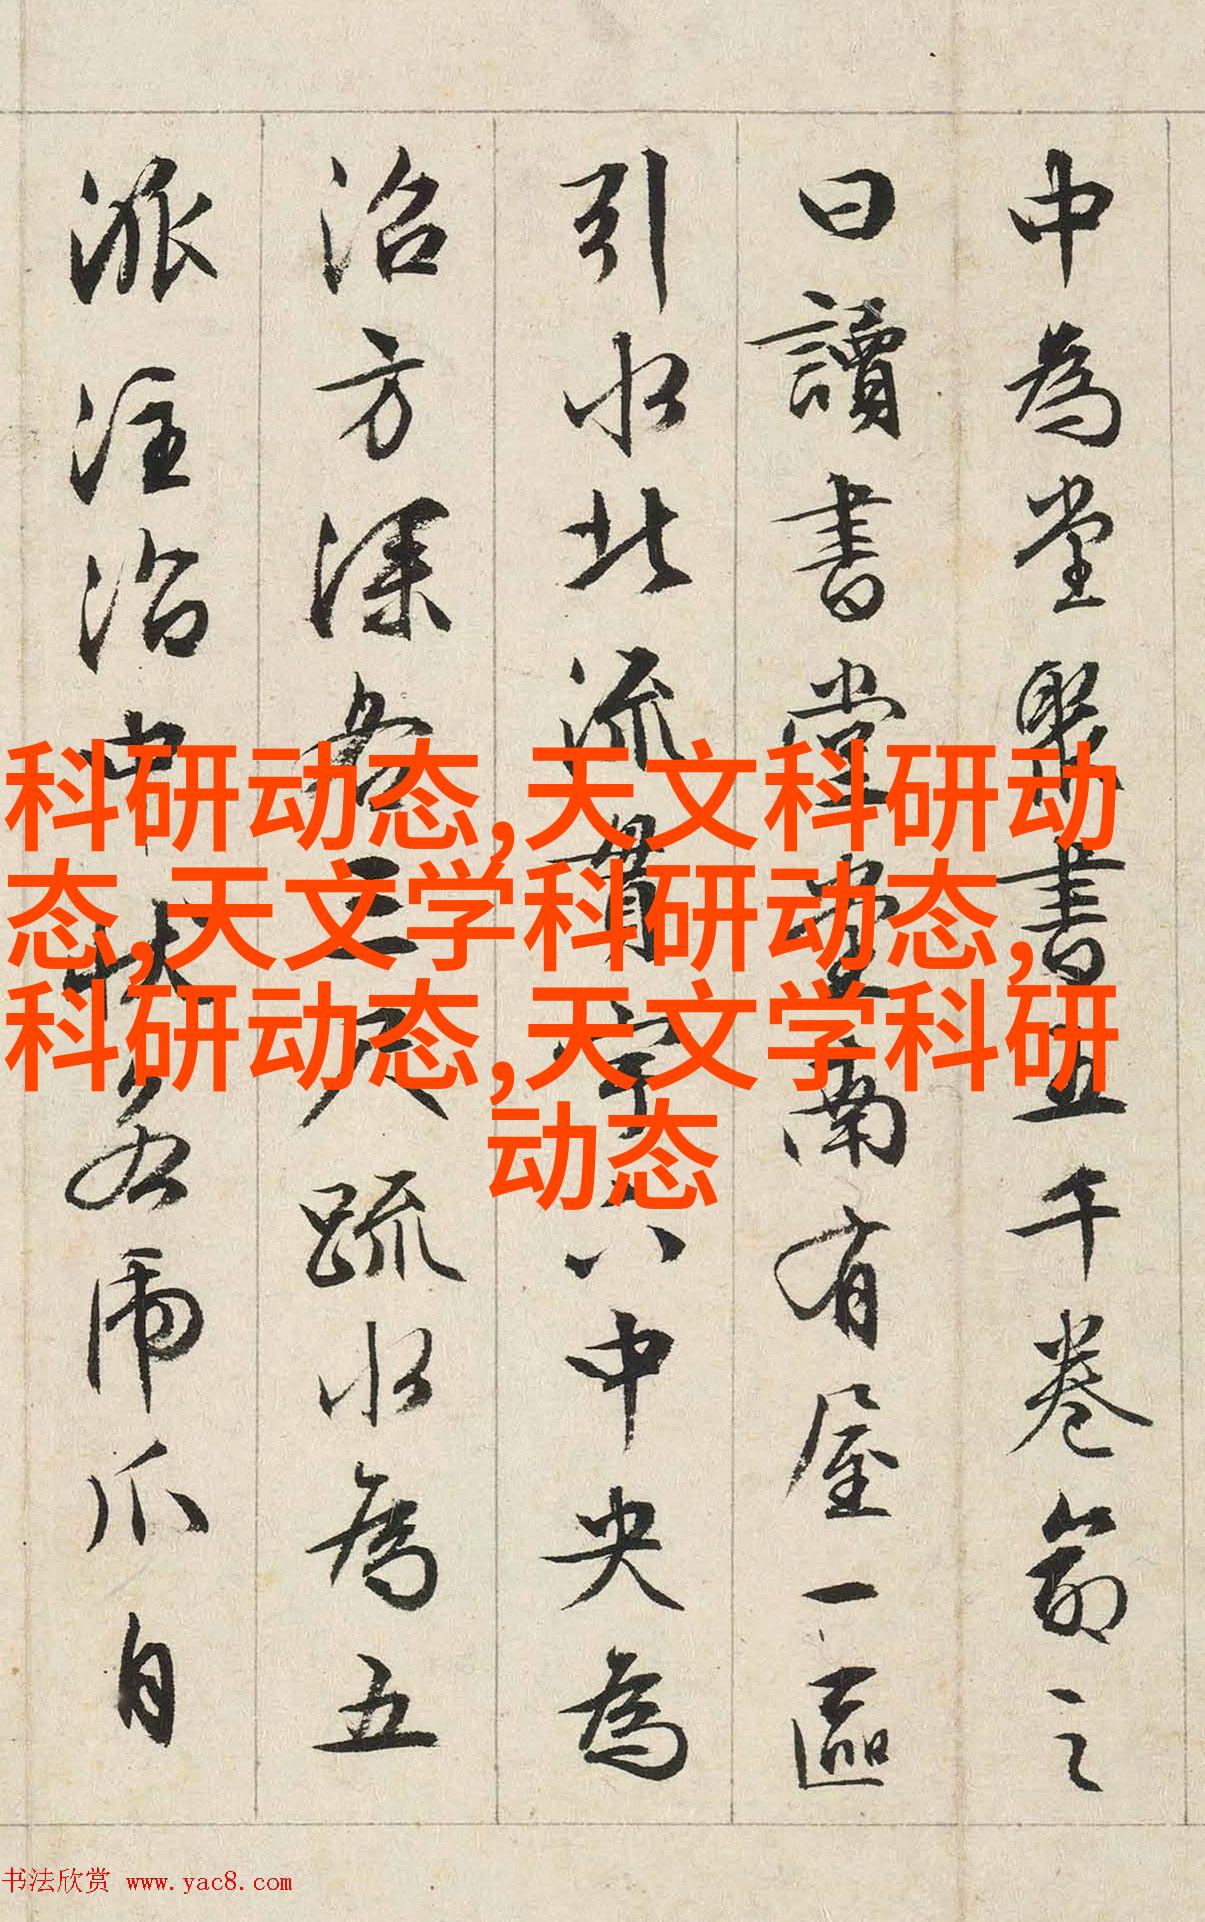 中為堂聚書五千卷命之
曰讀書堂堂南有屋一區
引水北流貫宇下中央為
沼方深各三尺疏水為五
派注沼中狀若虎爪自
科研动态,天文科研动
态,天文学科研动态,
科研动态,天文学科研
动态
书法欣赏 www.yac8.com